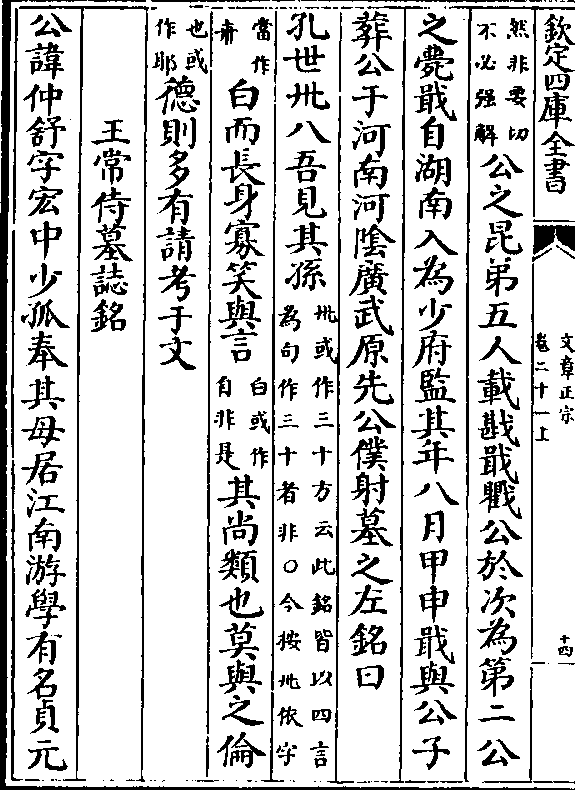 欽定四庫全書
文章正宗
卷二十一上
十四
然非要切
不必强解
公之昆弟五人載戡戢戵公於次為第二公
之薨戢自湖南入為少府監其年八月甲申戢與公子
葬公于河南河陰廣武原先公僕射墓之左銘曰
孔世卅八吾見其孫
卅或作三十方云此銘皆以四言
為句作三十者非○今按卅依字
當作
卉
白而長身寡笑與言
白或作
自非是
其尚類也莫與之倫
也或
作耶
德則多有請考于文
王常侍墓誌銘
公諱仲舒字宏中少孤奉其母居江南游學有名貞元